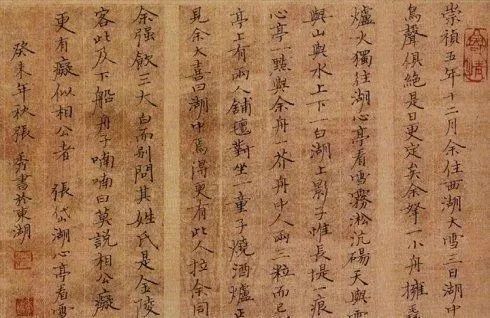 崇禎五年十二月余住西湖大雪三日湖中
鳥聲俱絕是日更定矣余拏一小舟擁毳
爐火獨往湖心亭看雪霧凇沆碭天與雲
與山與水上下一白湖上影子惟長堤一痕
心亭一點與余舟一芥舟中人兩三粒而已
亭上有兩人鋪氈對坐一童子燒酒爐正
見余大喜曰湖中焉得更有此人拉余同
余強飲三大白而別問其姓氏是金陵
客此及下船舟子喃喃曰莫說相公癡
更有癡似相公者 張岱湖心亭看雪
癸未年秋張秀書於東湖